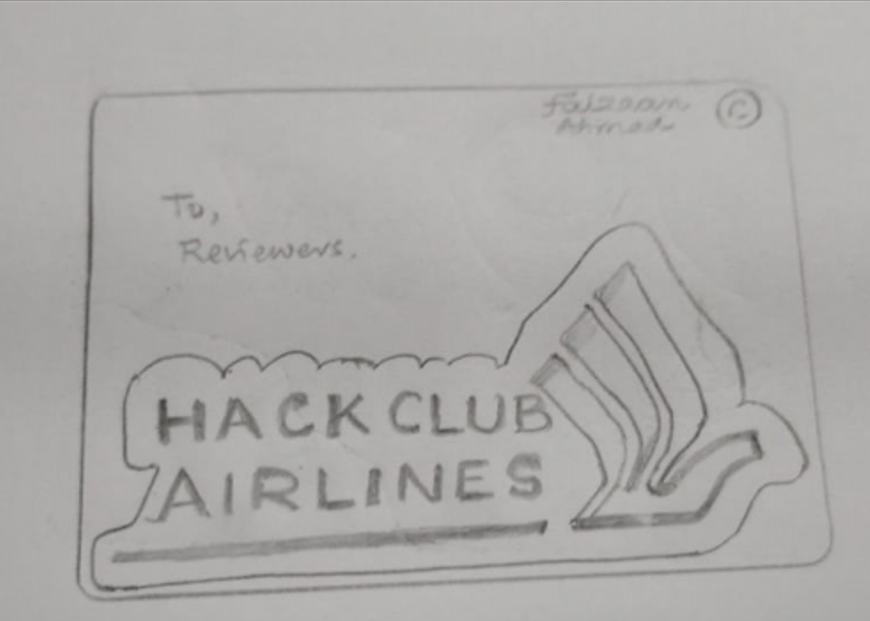 Faizaan ©
Ahmad
To,
Reviewers.
HACK CLUB
AIRLINES